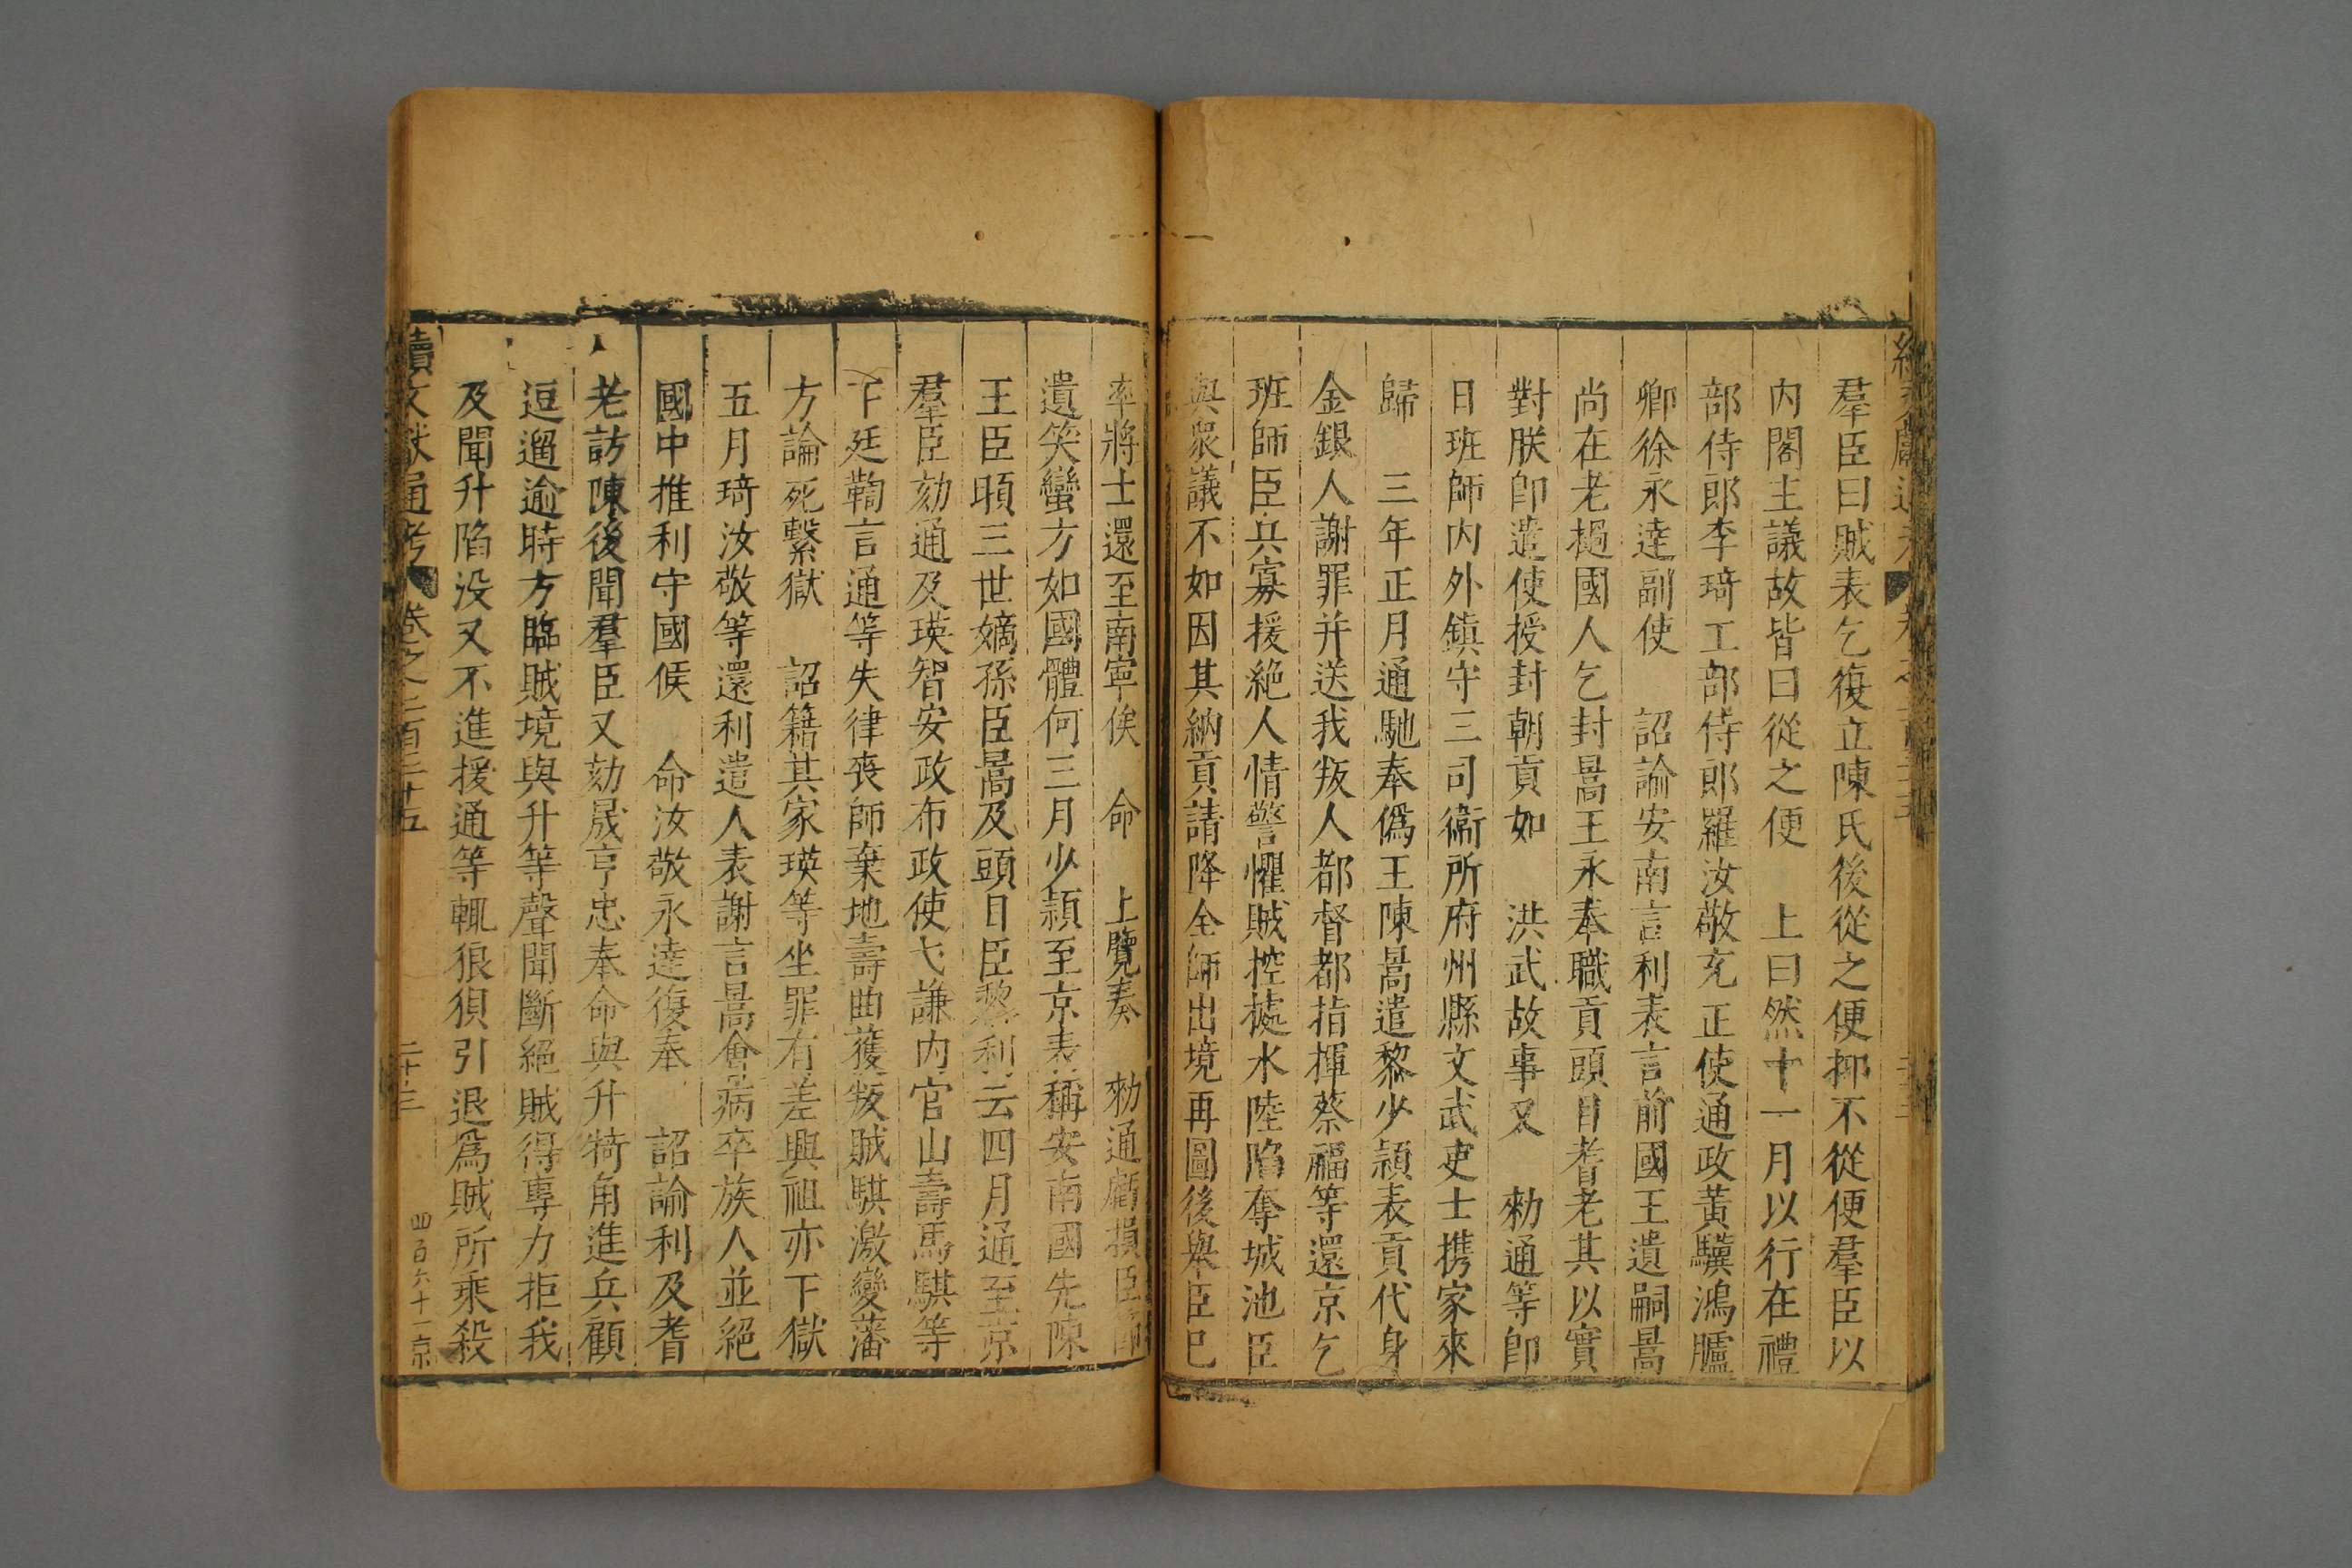 羣臣曰賊表乞復立陳氏後從之便抑不從便羣臣以
内閣主議故皆曰從之便　上曰然十一月以行在禮
部侍郎李琦工部侍郎羅汝敬充正使通政黃驥鴻臚
卿徐永達副使　詔諭安南言利表言前國王遺嗣暠
尚在老撾國人乞封暠王永奉職貢頭目耆老其以實
對朕卽遣使授封朝貢如　洪武故事又　勑通等卽
日班師内外鎮守三司衞所府州縣文武吏士携家來
歸　三年正月通馳奉僞王陳暠遣黎少頴表貢代身
金銀人謝罪并送我叛人都督都指揮蔡福等還京乞
班師臣兵寡援絶人情警懼賊控據水陸陷奪城池臣
與衆議不如因其納貢請降全師出境再圖後舉臣巳
率將士還至南寧俟　命　上覽奏　勑通虧損臣節
遺笑蠻方如國體何三月少頴至京表稱安南國先陳
王臣頔三世嫡孫臣暠及頭目臣黎利云四月通至京
羣臣劾通及瑛智安政布政使弋謙内官山壽馬騏等
下廷鞫言通等失律喪師棄地壽曲護叛賊騏激變藩
方論死繫獄　詔籍其家瑛等坐罪有差興祖亦下獄
五月琦汝敬等還利遣人表謝言暠會病卒族人並絕
國中推利守國俟　命汝敬永達復奉　詔諭利及耆
老訪陳後聞羣臣又劾晟亨忠奉命與升犄角進兵顧
逗遛逾時方臨賊境與升等聲聞斷絕賊得專力拒我
及聞升陷没又不進援通等輒狼狽引退爲賊所乘殺
續文獻通考　卷之二百三十五　二十三　四百六十一京